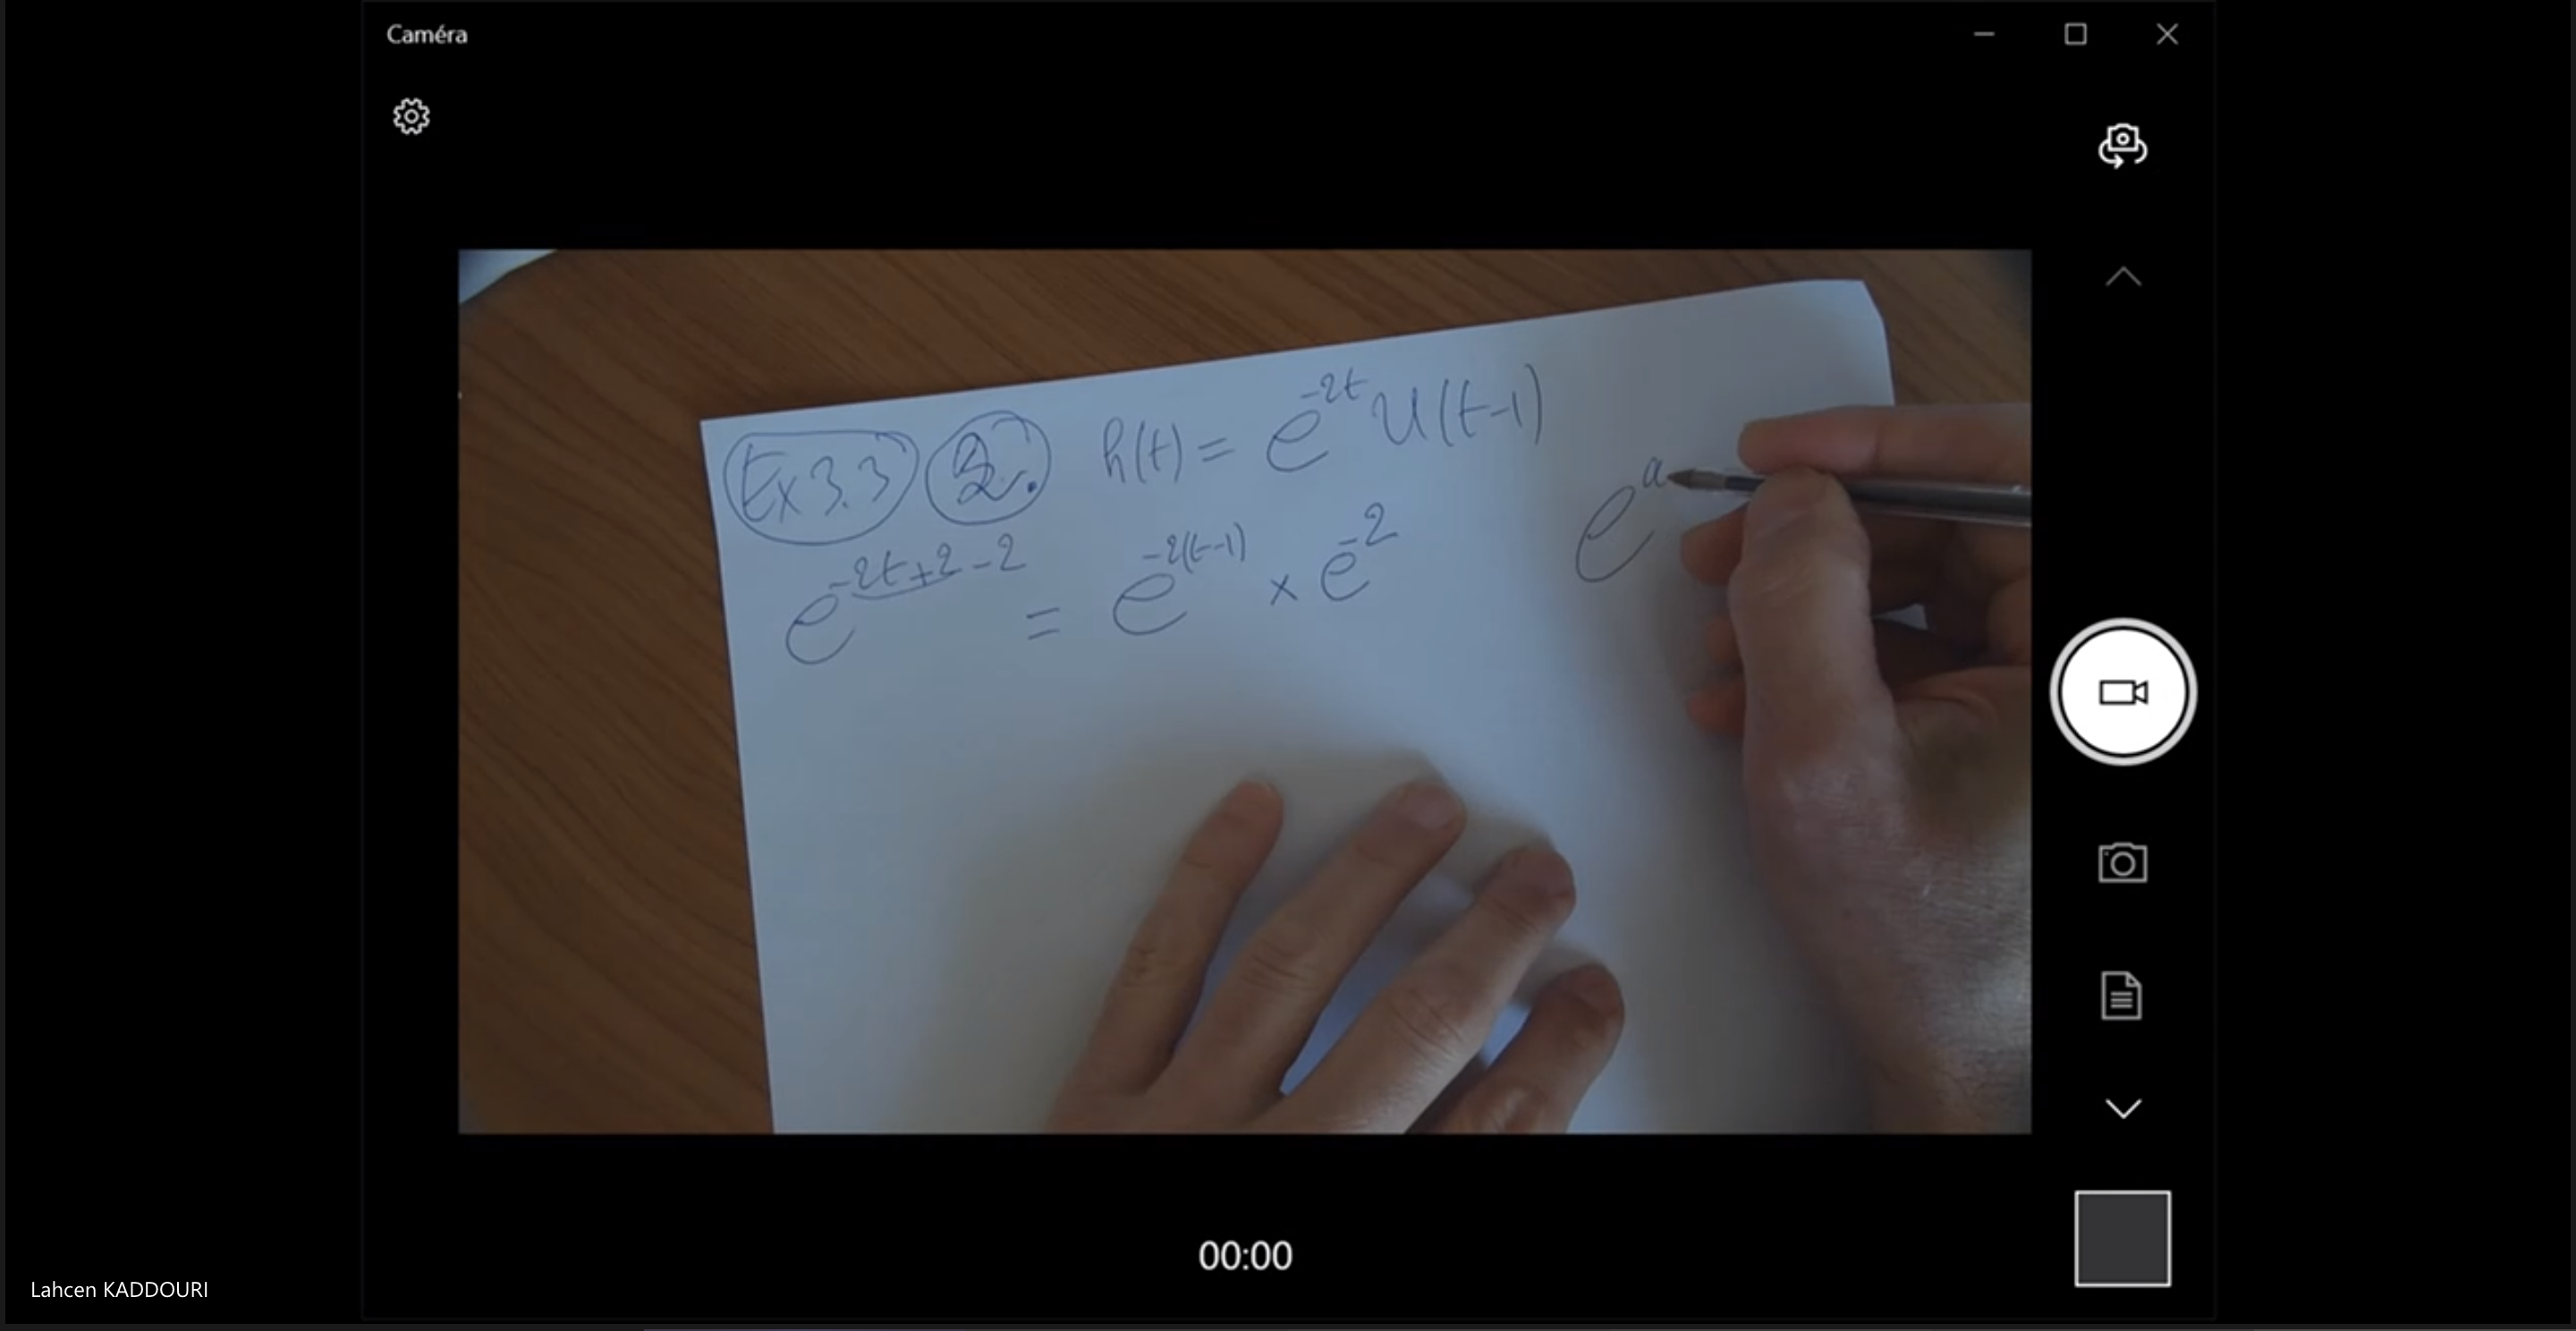 Caméra
Ex 3.3 2. h(t) = e^{-2t} U(t-1)
e^{-2t+2-2} = e^{-2(t-1)} × e^{-2}
e^a
00:00
Lahcen KADDOURI